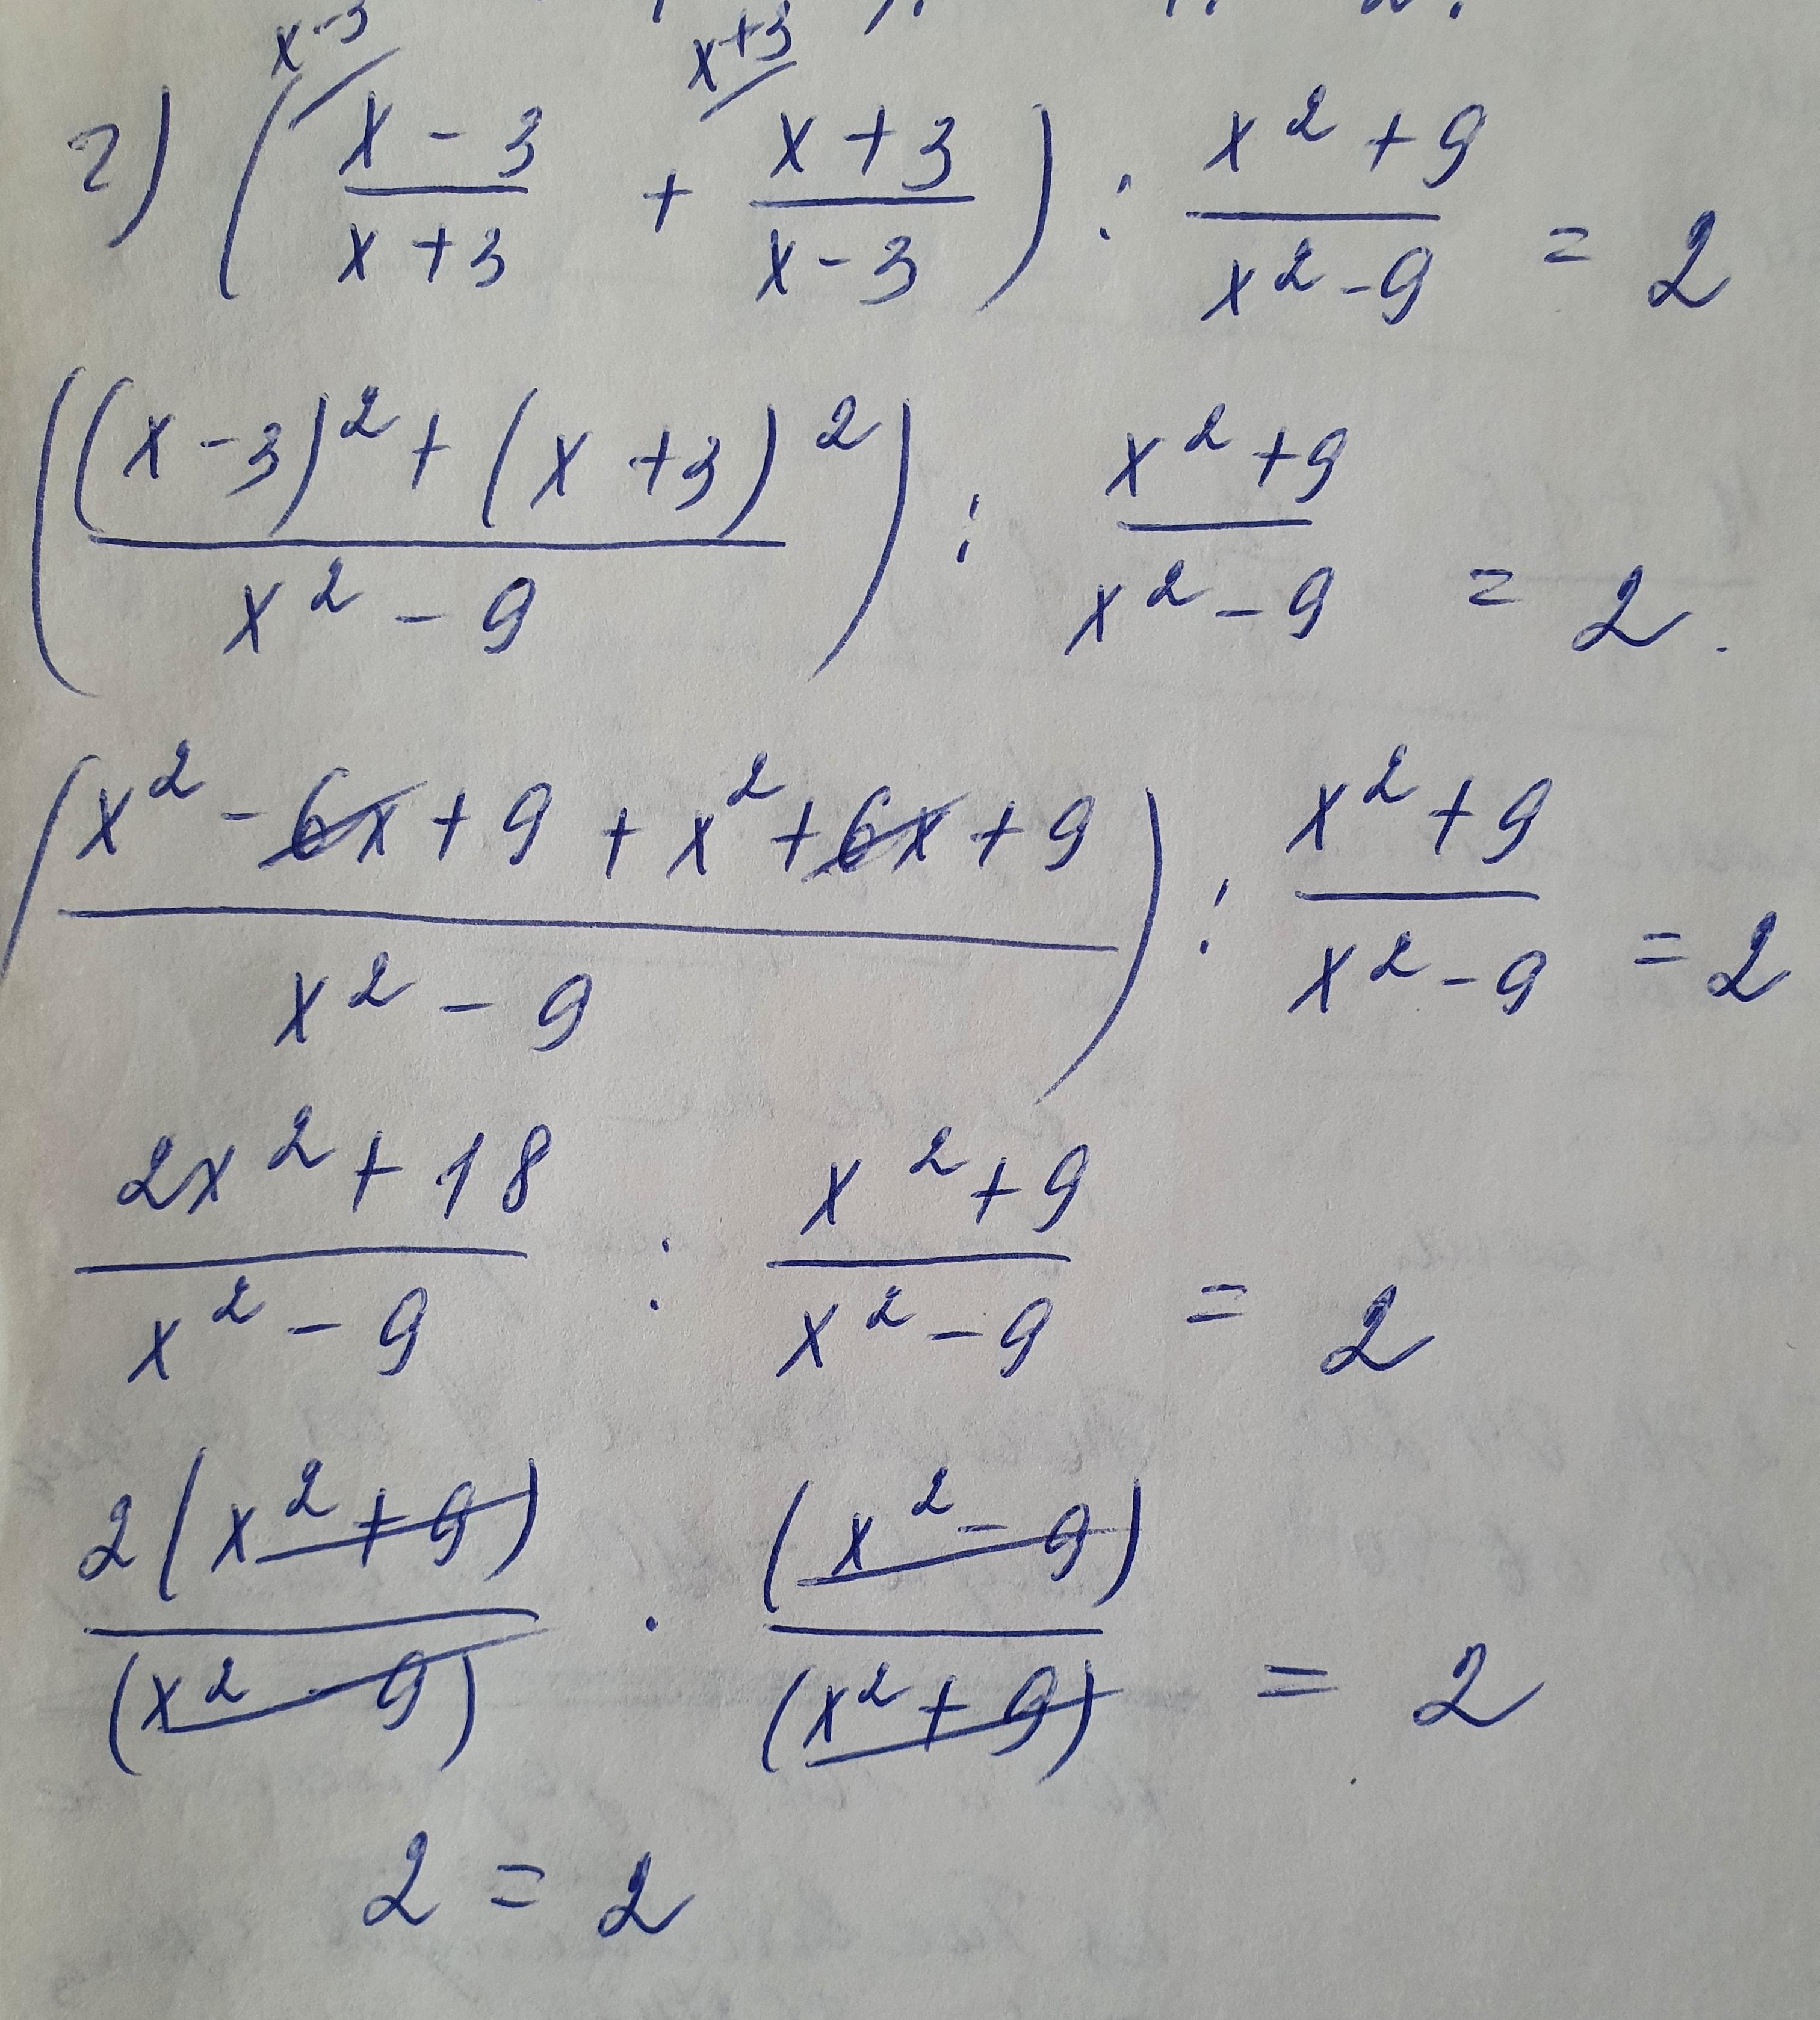 x-3 x+3
г) ( (x-3)/(x+3) + (x+3)/(x-3) ) : (x²+9)/(x²-9) = 2
( ((x-3)²+(x+3)²)/(x²-9) ) : (x²+9)/(x²-9) = 2.
( (x²-6x+9+x²+6x+9)/(x²-9) ) : (x²+9)/(x²-9) = 2
(2x²+18)/(x²-9) : (x²+9)/(x²-9) = 2
2(x²+9)/(x²-9) · (x²-9)/(x²+9) = 2
2 = 2